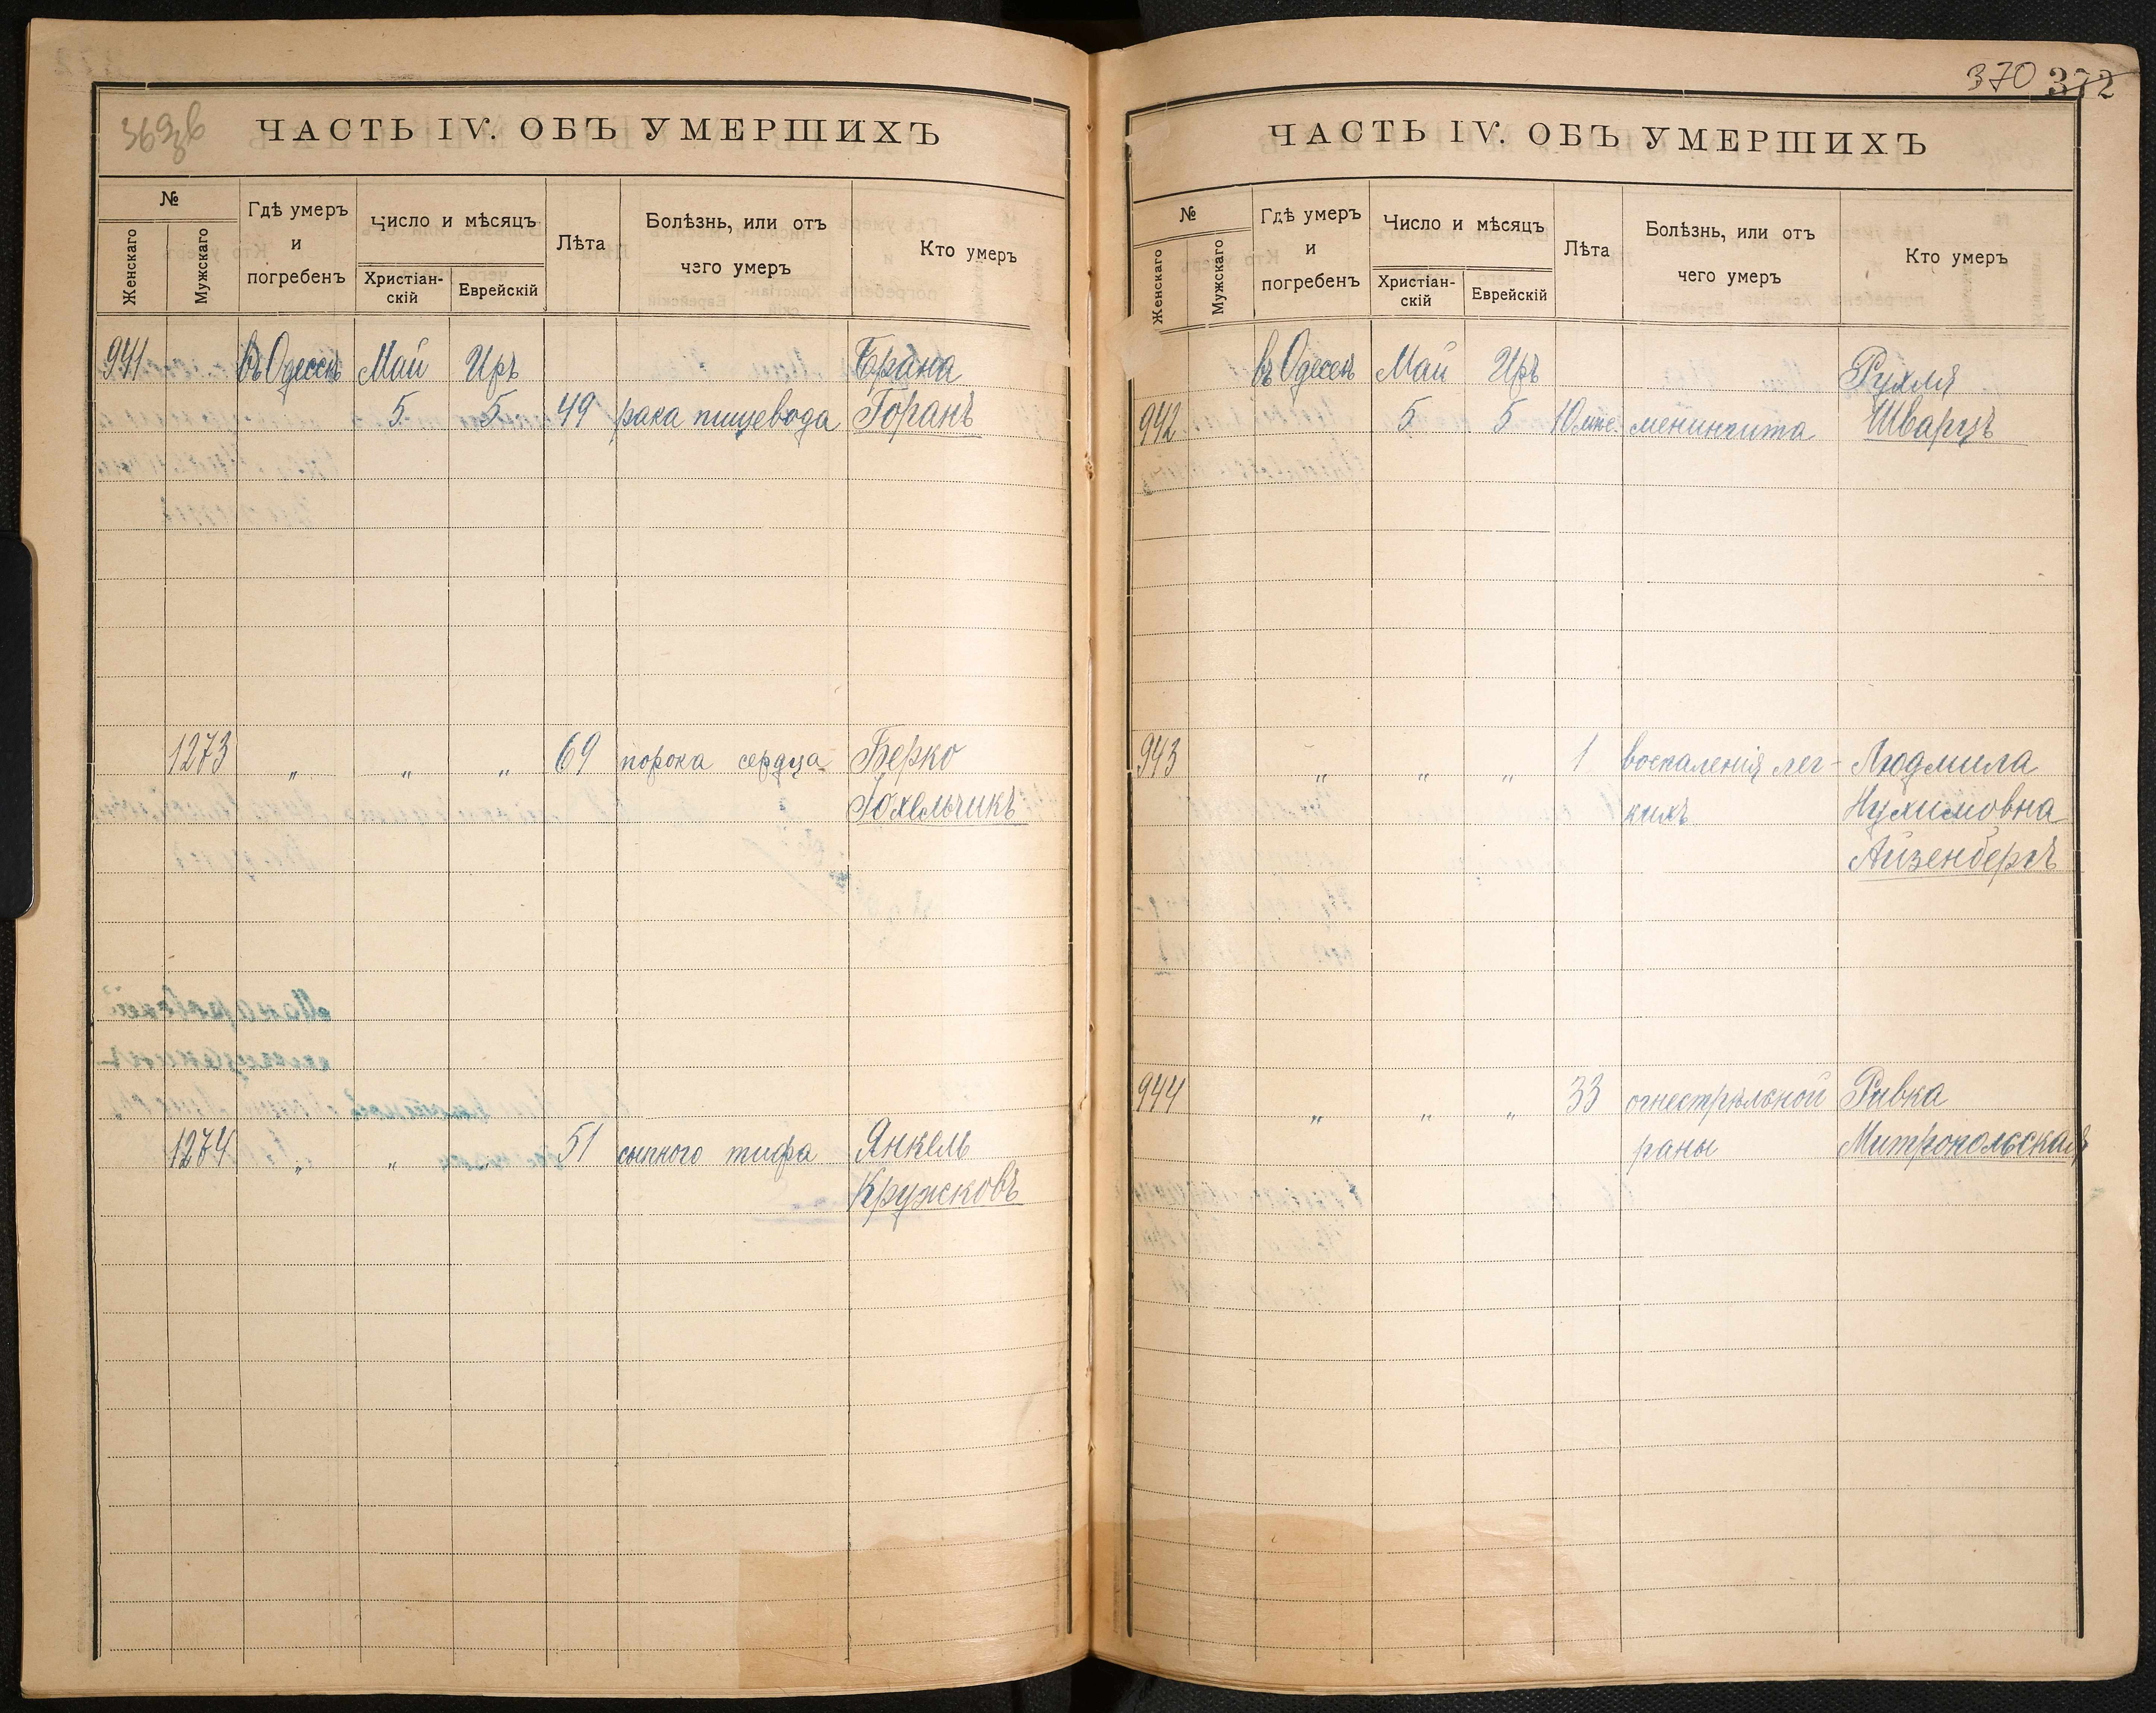 369зв
ЧАСТЬ IV. ОБЪ УМЕРШИХЪ
№
Женскаго
Мужскаго
Гдѣ умеръ
и
погребенъ
Число и мѣсяцъ
Христіан-
скій
Еврейскій
Лѣта
Болѣзнь, или отъ
чего умеръ
Кто умеръ
941 въ Одессѣ Май Иръ Брана
5 5 49 рака пищевода Горанъ
1273 „ „ „ 69 порока сердца Берко
Гохельчикъ
1274 „ „ „ 51 сыпного тифа Янкель
Кружсковъ
370 372
ЧАСТЬ IV. ОБЪ УМЕРШИХЪ
№
Женскаго
Мужскаго
Гдѣ умеръ
и
погребенъ
Число и мѣсяцъ
Христіан-
скій
Еврейскій
Лѣта
Болѣзнь, или отъ
чего умеръ
Кто умеръ
въ Одессѣ Май Иръ Рухля
942 5 5 10 мѣс. менингита Шварцъ
943 „ „ „ 1 воспаленія лег- Людмила
кихъ Нухимовна
Айзенбергъ
944 „ „ „ 33 огнестрѣльной Ривка
раны Митропольская